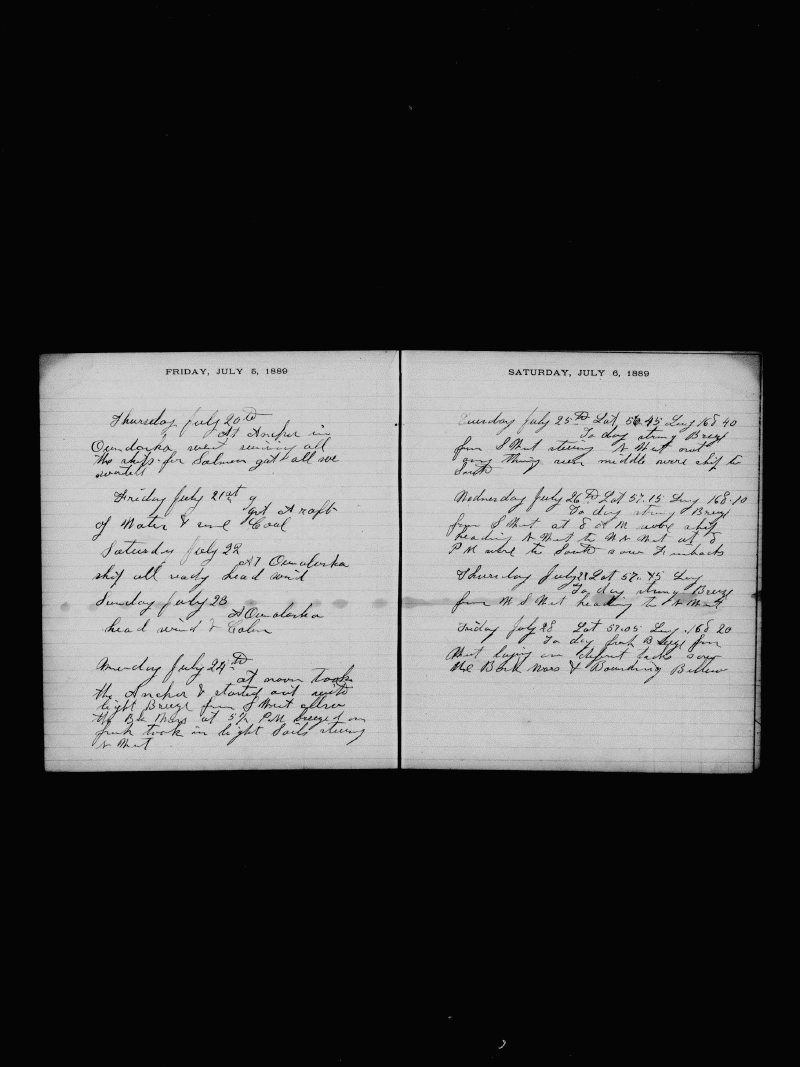 FRIDAY, JULY 5, 1889
Thursday July 20th
At Ancher in
Ounalaska went all
the ships for Salmon got all we
wanted
Friday July 21st
got A raft
of Water & some Coal
Saturday July 22
AT Ounalaska
ship all ready head wind
Sunday July 23
A Ounalaska
head wind & Calm
Monday July 24th
at noon took
the Ancher & started out with
light Breeze from S West
the at 5 P.M. breezed on
fresh took in light Sails steering
N West
SATURDAY, JULY 6, 1889
Tuesday July 25th Lat 56.45 Long 168 40
To day strong Breeze
from S West steering N West
any thing seen middle wore ship to
South
Wednesday July 26th Lat 57.15 Long 168.10
To day strong Breeze
from S West at 8 A M wore ship
heading N West to W N West at 8
P M wore to South saw Finbacks
Thursday July 27 Lat 57.45 Long
To day strong Breeze
from W S West heading to N West
Friday July 28 Lat 57.05 Long 168 20
To day fresh Breeze from
West laying on different tacks saw
the Bark Mars & Bounding Billow